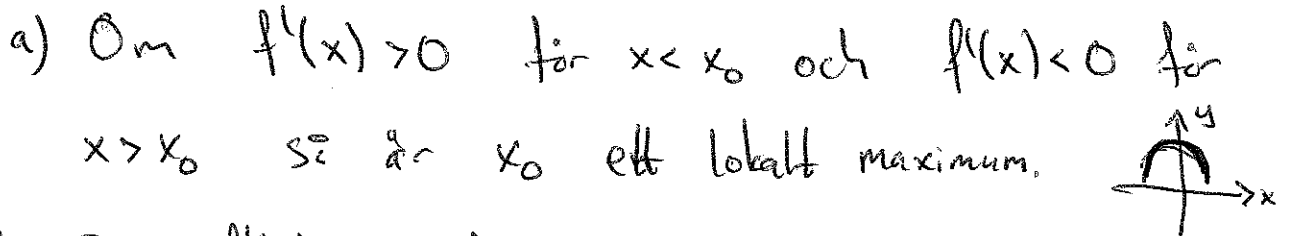 a) Om f'(x) > 0 för x < x₀ och f'(x) < 0 för
x > x₀ så är x₀ ett lokalt maximum.
y
x